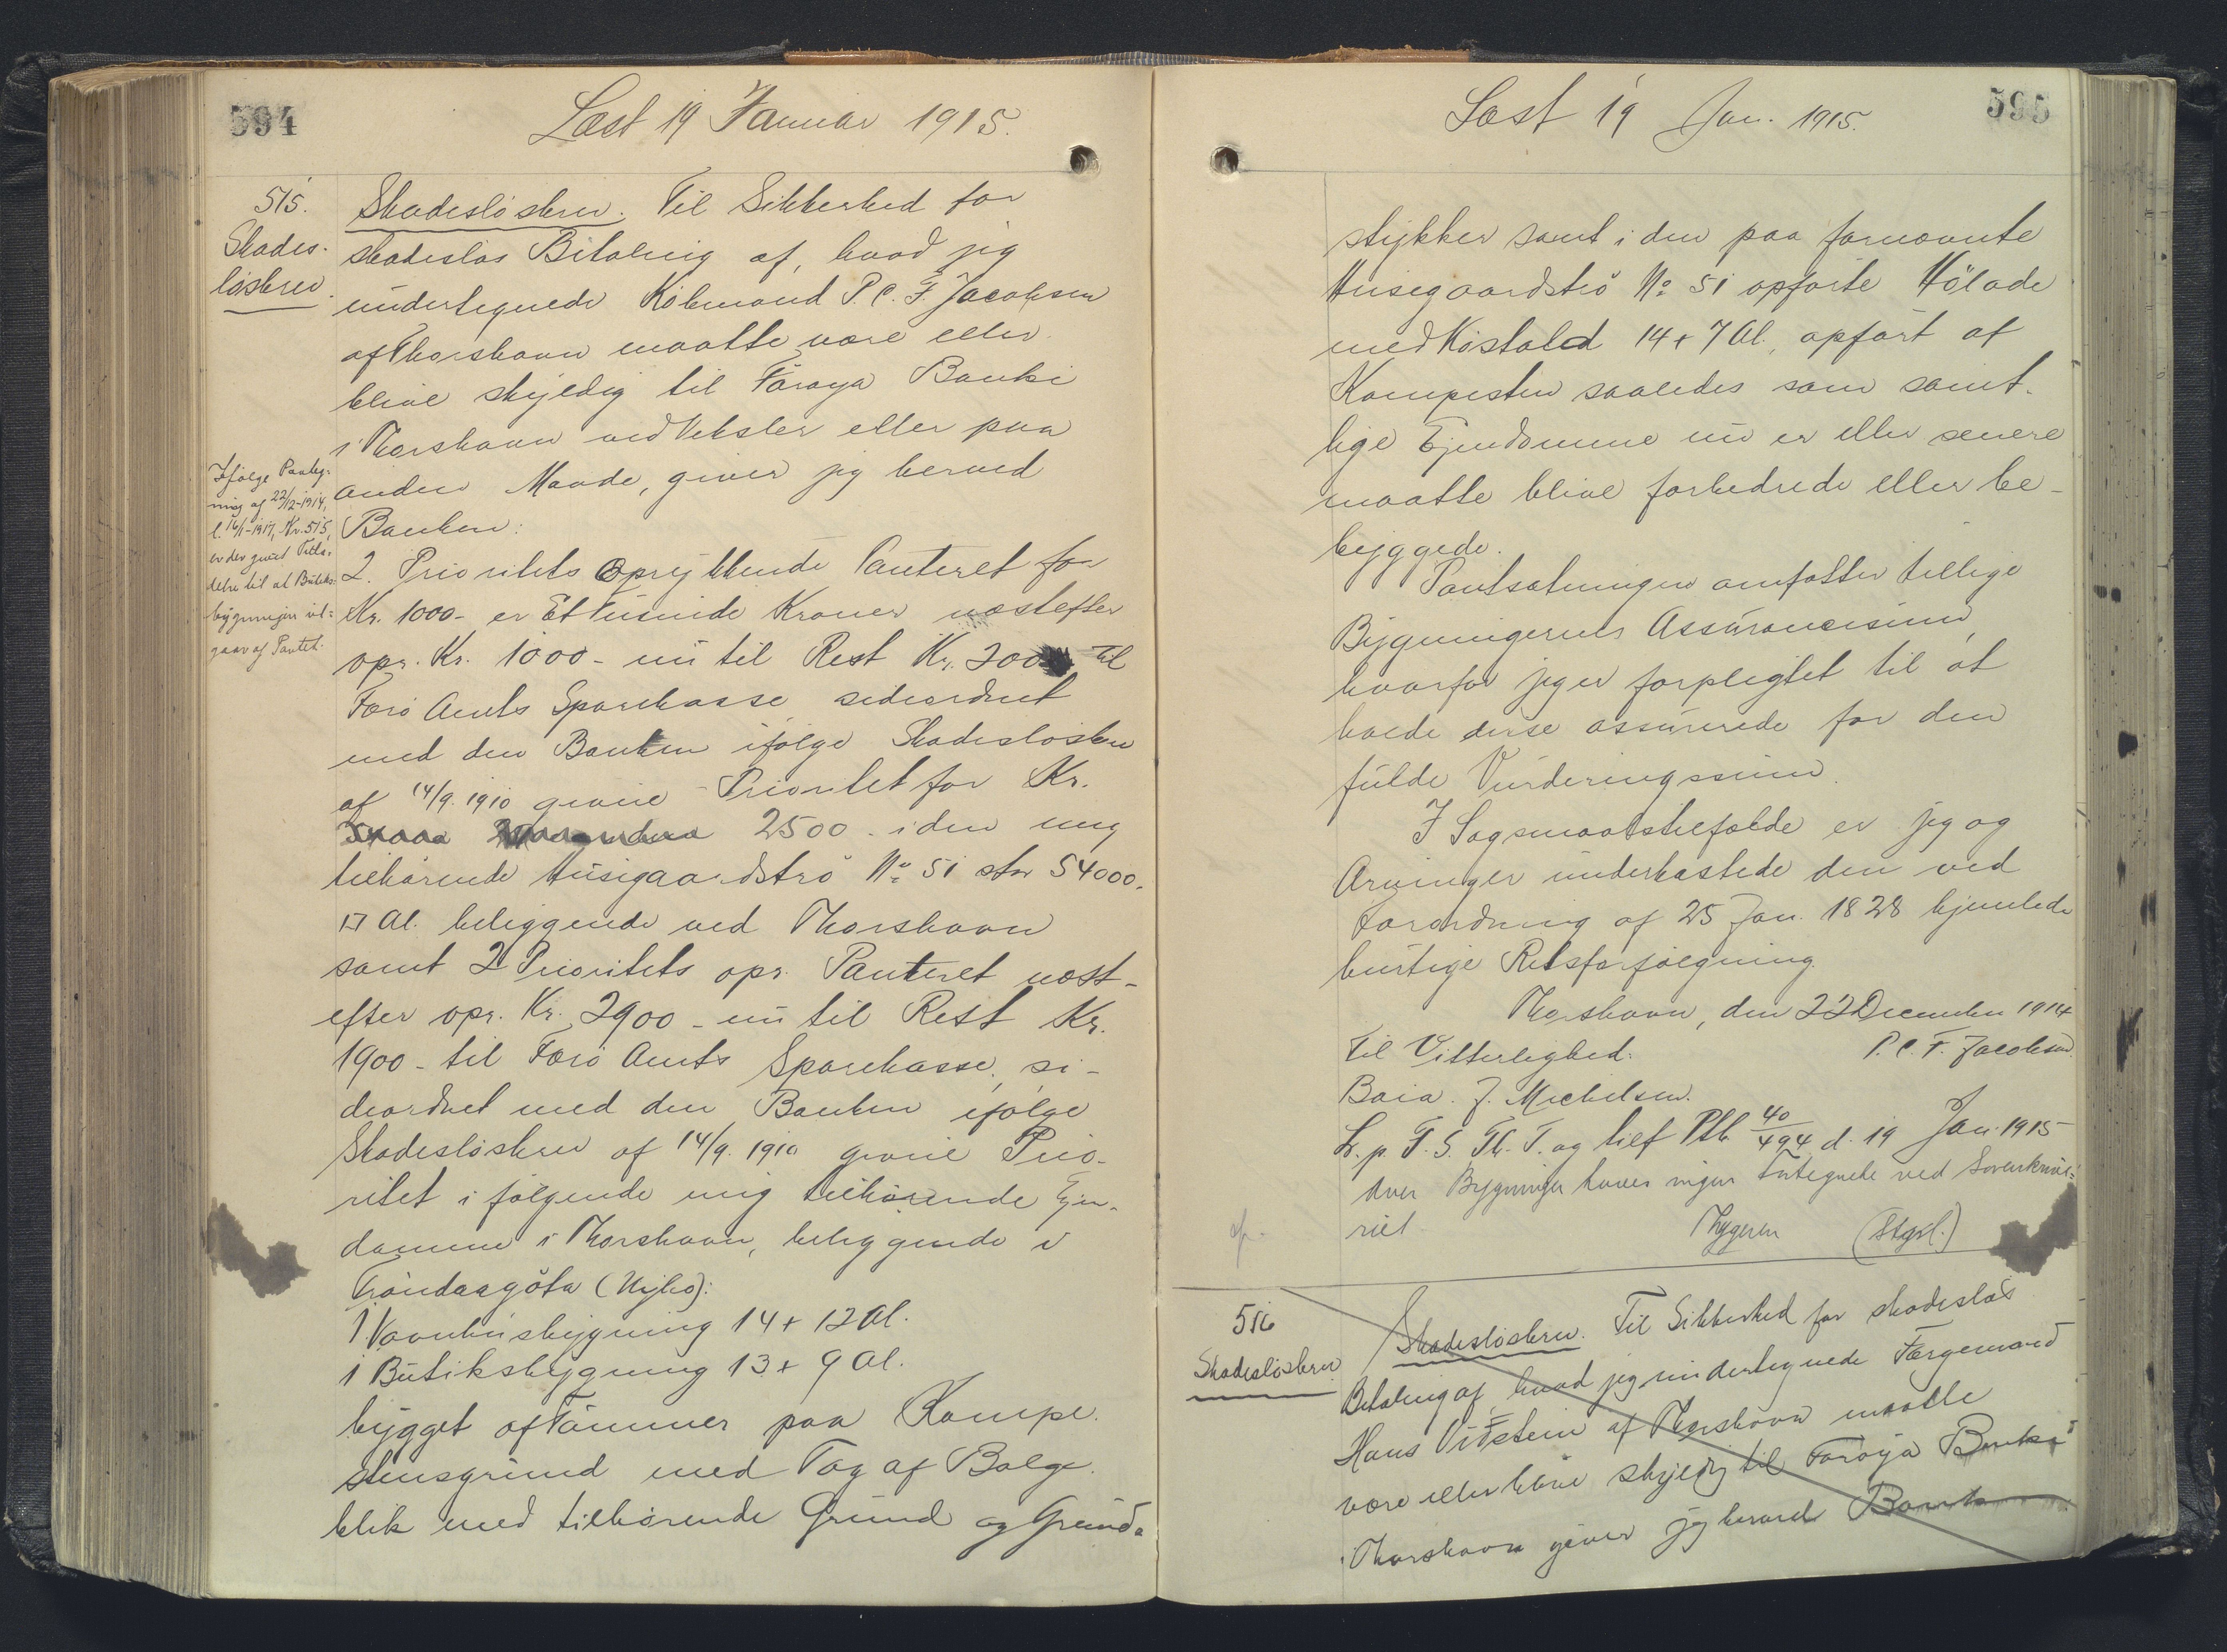 594
Læst 19 Januar 1915.
515.
Skades-
løsbrev.
Skadesløsbrev. Til Sikkerhed for
skadesløs Betaling af, hvad jeg
undertegnede Købmand P. C. F. Jacobsen
af Thorshavn maatte være eller
blive skyldig til Føroya Banki
i Thorshavn ved Veksler eller paa
anden Maade, giver jeg herved
Banken:
2. Prioritets oprykkende Panteret for
Kr. 1000- er Et Tusinde Kroner næstefter
opr. Kr. 1000- nu til Rest Kr. 200 til
Færø Amts Sparekasse sideordnet
med den Banken ifølge Skadesløsbrev
af 14/9. 1910 givne Prioritet for Kr.
2500. i den mig
tilhørende Husigaardstrø No 51 stor 54000.
□ Al. beliggende ved Thorshavn
samt 2 Prioritets opr. Panteret næst-
efter opr. Kr. 2900- nu til Rest Kr.
1900- til Færø Amts Sparekasse, si-
deordnet med den Banken ifølge
Skadesløsbrev af 14/9. 1910 givne Prio-
ritet i følgende mig tilhørende Ejen-
domme i Thorshavn, beliggende i
Tróndargøta (Nybo):
1 Vaanhusbygning 14 + 12 Al.
1 Butiksbygning 13 + 9 Al.
bygget af Tømmer paa Kampe-
stensgrund med Tag af Bølge-
blik med tilhørende Grund og Grund-
Ifølge Paateg-
ning af 22/12-1914,
l. 16/1-1917, Nr. 515,
er der givet Tilla-
delse til at Butiks-
bygningen ud-
gaar af Pantet.
595
Læst 19 Jan. 1915.
stykker samt i den paa fornævnte
Husegaardstrø No 51 opførte Hølade
med Kostald 14 + 7 Al., opført af
Kampesten saaledes som samt-
lige Ejendomme nu er eller senere
maatte blive forbedrede eller be-
byggede.
Pantsætningen omfatter tillige
Bygningernes Assurancesum,
hvorfor jeg er forpligtet til at
holde disse assurerede for den
fulde Vurderingssum.
I Søgsmaalstilfælde er jeg og
Arvinger underkastede den ved
Forordning af 25 Jan. 1828 hjemlede
hurtige Retsforfølgning.
Thorshavn, den 22 December 1914
P. C. F. Jacobsen
Til Vitterlighed:
Baia. J. Michelsen.
L. p. F. S. Th. T. og tilf Ptb. 40/494 d. 19 Jan. 1915
Over Bygninger haves ingen Fortegnelse ved Sorenskrive-
riet
Thygesen (Stgsl.)
516
Skadesløsbrev
Skadesløsbrev. Til Sikkerhed for skadesløs
Betaling af, hvad jeg undertegnede Færgemand
Hans Vitstein af Thorshavn maatte
være eller blive skyldig til Føroya Banki
i Thorshavn giver jeg herved Banken